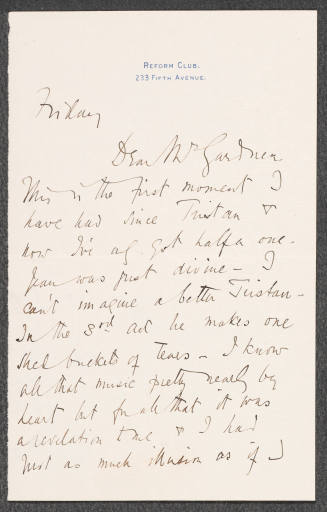 REFORM CLUB.
233 FIFTH AVENUE.
Friday
Dear Mrs Gardner
This is the first moment I
have had since Tristan &
now I've only got half a one -
Jean was just divine - I
can't imagine a better Tristan -
In the 3rd act he makes one
shed buckets of tears - I know
all that music pretty nearly by
heart but for all that it was
a revelation to me & I had
just as much illusion as if I